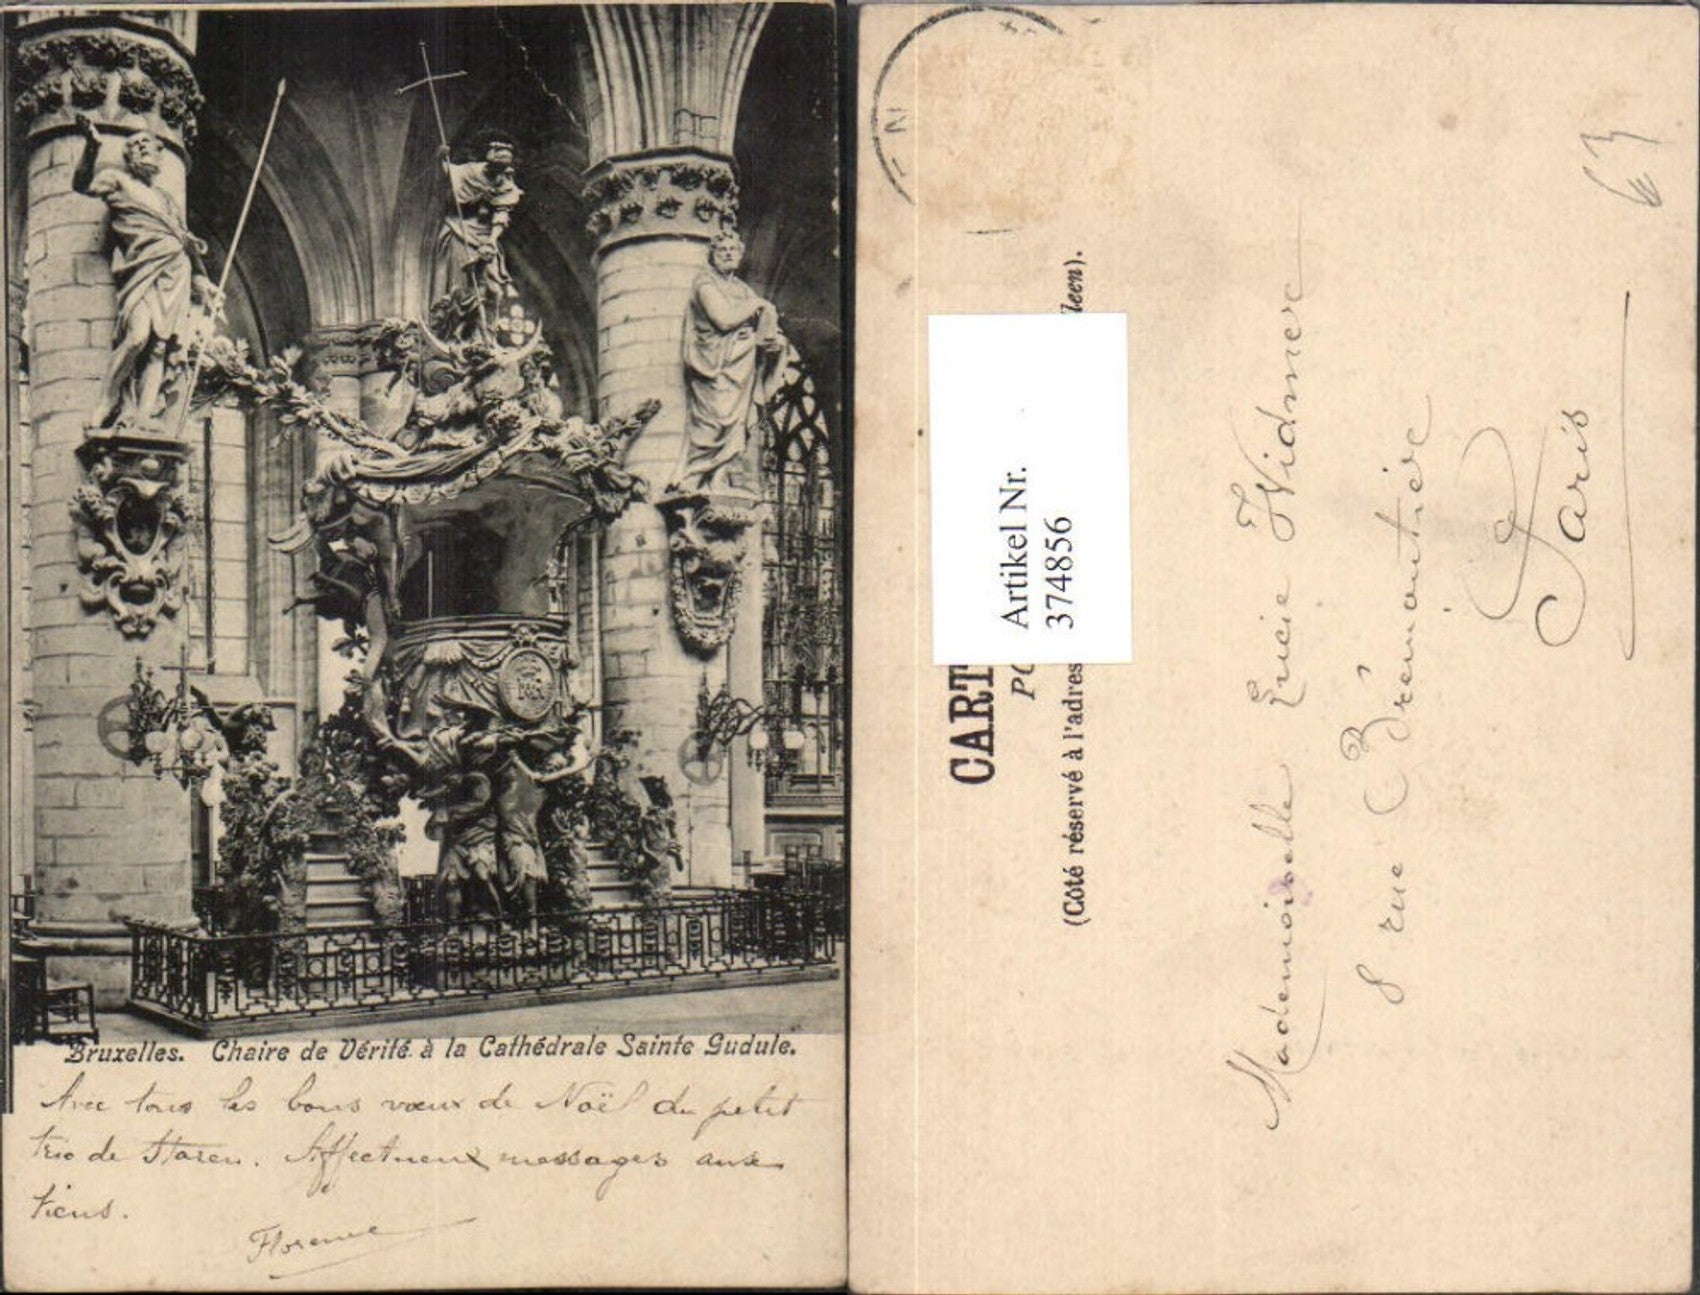 Bruxelles. Chaire de Vérité à la Cathédrale Sainte Gudule.
Avec tous les bons vœux de Noël du petit
trio de Haren. Affectueux messages aux
tiens.
Florence
CART
PO
(Côté réservé à l'adres leen).
Artikel Nr.
374856
Mademoiselle Lucie Widmer
8 rue Brémontier
Paris
63